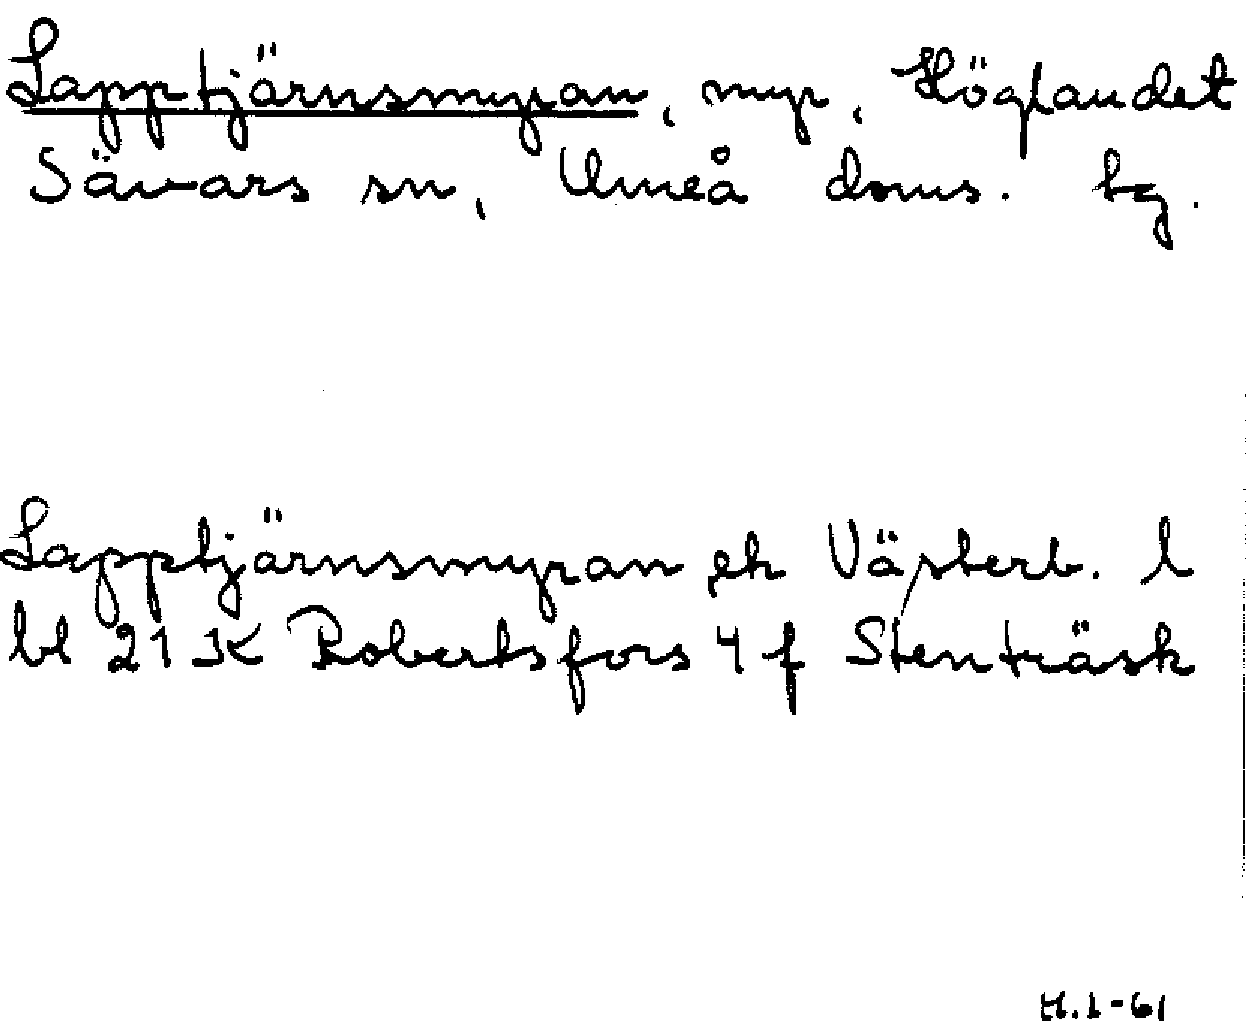 Lapptjärnsmyran, myr, Höglandet
Sävars sn, Umeå doms. tg.
Lapptjärnsmyran ek Västerb. l
bl 21 K Robertsfors 4 f Stenträsk
H.L-61